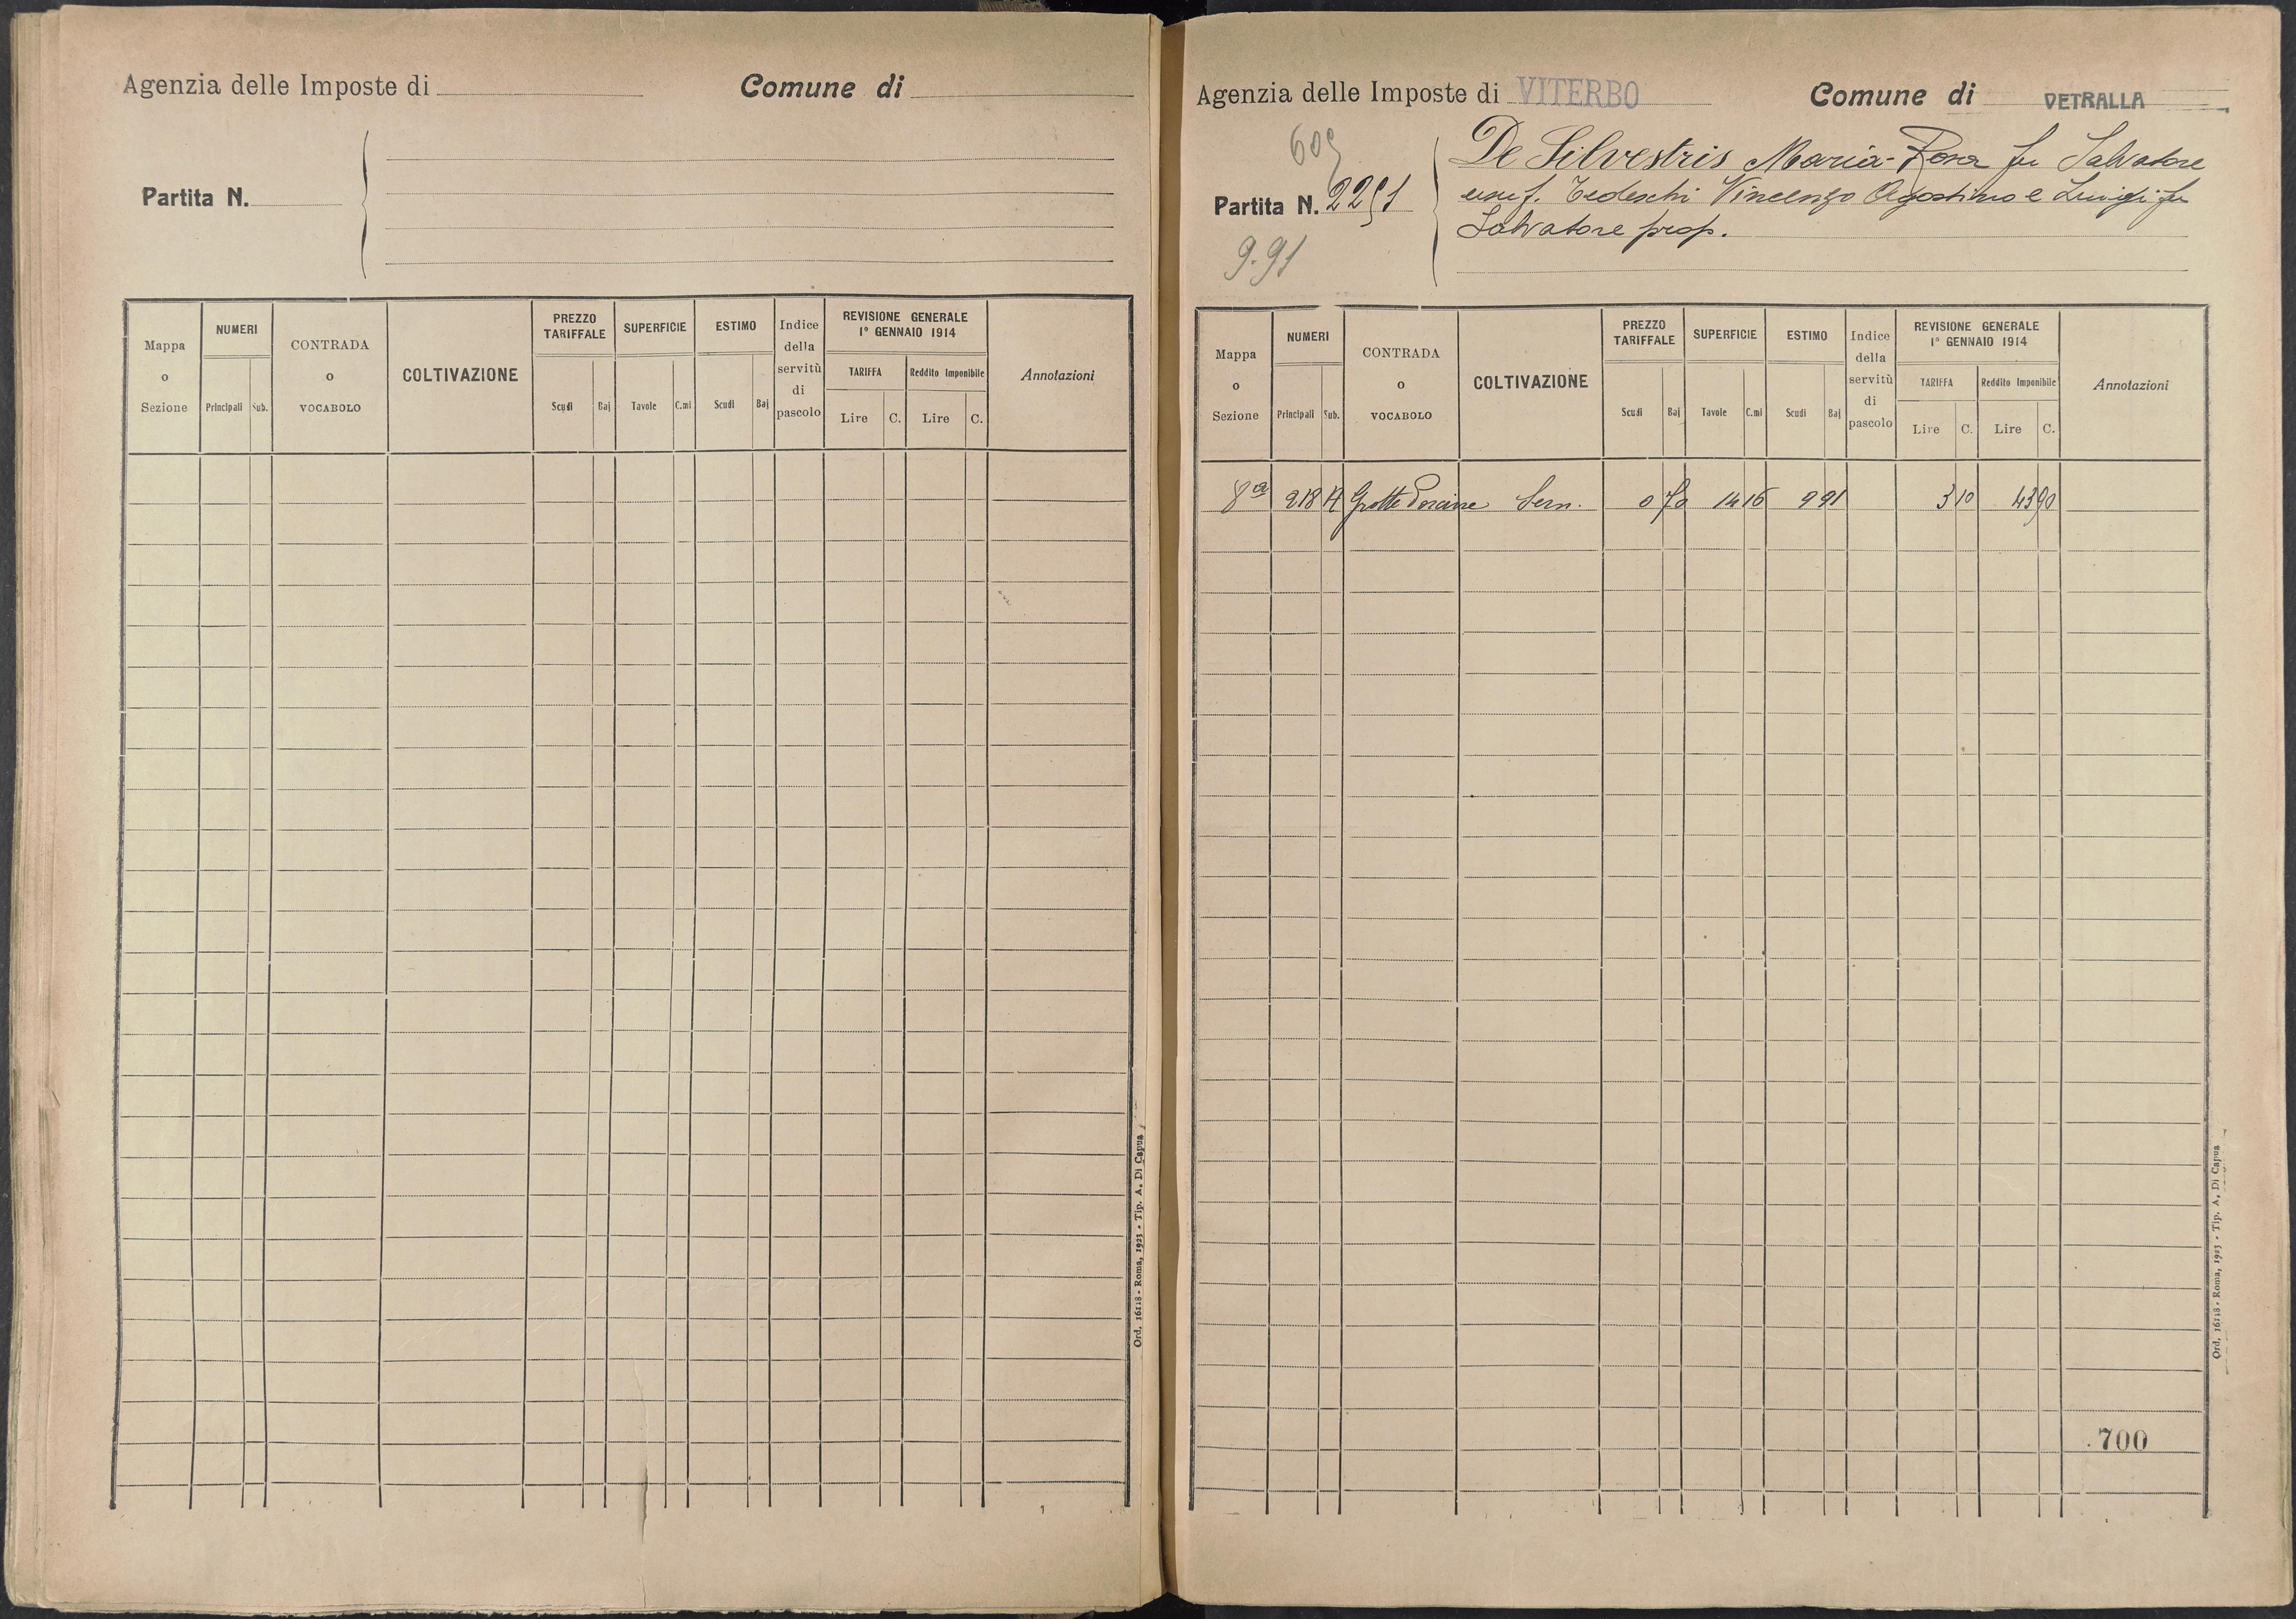 Agenzia delle Imposte di
Comune di
Partita N.
Mappa o Sezione
NUMERI
Principali Sub.
CONTRADA o VOCABOLO
COLTIVAZIONE
PREZZO TARIFFALE
Scudi Baj
SUPERFICIE
Tavole C.mi
ESTIMO
Scudi Baj
Indice della servitù di pascolo
REVISIONE GENERALE
1° GENNAIO 1914
TARIFFA
Lire C.
Reddito Imponibile
Lire C.
Annotazioni
Ord. 16118 - Roma, 1923 - Tip. A. Di Capua
Agenzia delle Imposte di VITERBO
Comune di VETRALLA
Partita N. 2251
9.91
De Silvestris Maria-Rosa fu Salvatore
usuf. Tedeschi Vincenzo Agostino e Luigi fu
Salvatore prop.
Mappa o Sezione
NUMERI
Principali Sub.
CONTRADA o VOCABOLO
COLTIVAZIONE
PREZZO TARIFFALE
Scudi Baj
SUPERFICIE
Tavole C.mi
ESTIMO
Scudi Baj
Indice della servitù di pascolo
REVISIONE GENERALE
1° GENNAIO 1914
TARIFFA
Lire C.
Reddito Imponibile
Lire C.
Annotazioni
8a 218 Grotte Porcine Sem. 0 70 14 16 9 91 3 10 43 90
700
Ord. 16118 - Roma, 1923 - Tip. A. Di Capua